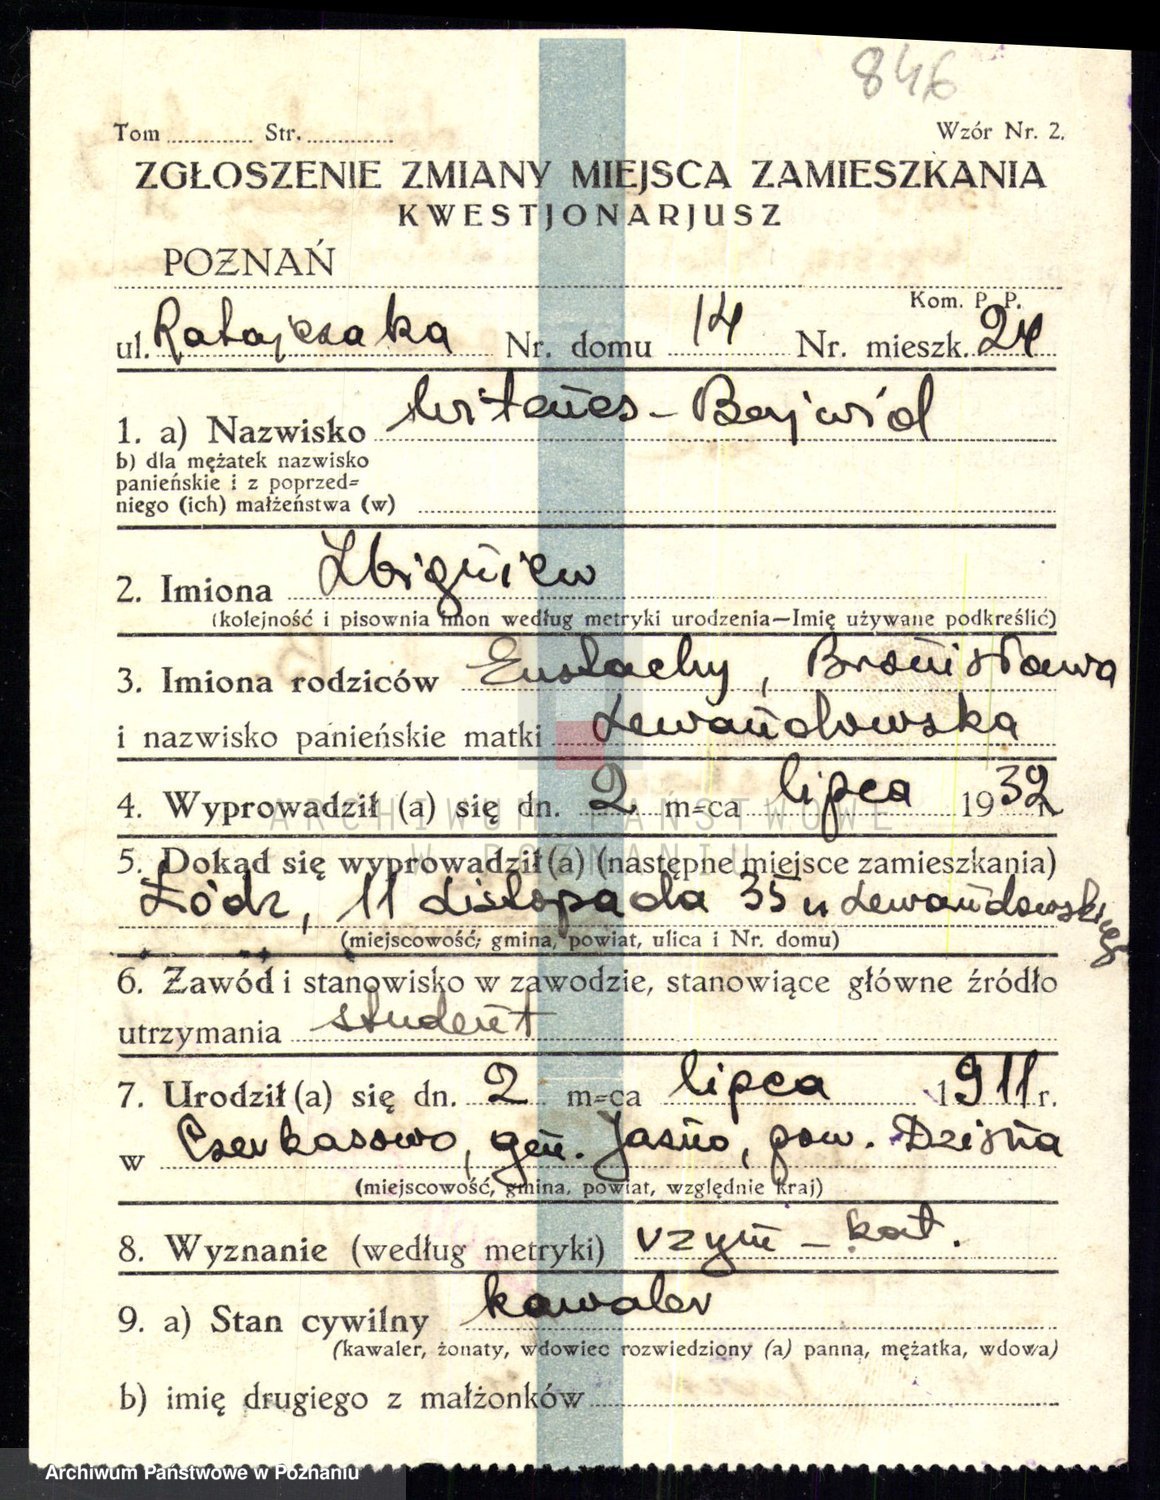 846
Tom ............ Str. ............ Wzór Nr. 2.
ZGŁOSZENIE ZMIANY MIEJSCA ZAMIESZKANIA
KWESTJONARJUSZ
POZNAŃ
Kom. P. P.
ul. Ratajczaka Nr. domu 14 Nr. mieszk. 24
1. a) Nazwisko Witenes-Bejwid
b) dla mężatek nazwisko
panieńskie i z poprzed=
niego (ich) małżeństwa (w)
2. Imiona Zbigniew
(kolejność i pisownia imion według metryki urodzenia—Imię używane podkreślić)
3. Imiona rodziców Eustachy, Bronisława
i nazwisko panieńskie matki Lewandowska
4. Wyprowadził (a) się dn. 2 m=ca lipca 1932 r.
5. Dokąd się wyprowadził(a) (następne miejsce zamieszkania)
Łódz, 11 Listopada 35 u Lewandowskiego
(miejscowość, gmina, powiat, ulica i Nr. domu)
6. Zawód i stanowisko w zawodzie, stanowiące główne źródło
utrzymania student
7. Urodził(a) się dn. 2 m=ca lipca 1911 r.
w Czerkasowo, gm. Jasno, pow. Dzisna
(miejscowość, gmina, powiat, względnie kraj)
8. Wyznanie (według metryki) rzym-kat.
9. a) Stan cywilny kawaler
(kawaler, żonaty, wdowiec rozwiedziony (a) panna, mężatka, wdowa)
b) imię drugiego z małżonków
ARCHIWUM PAŃSTWOWE
W POZNANIU
Archiwum Państwowe w Poznaniu